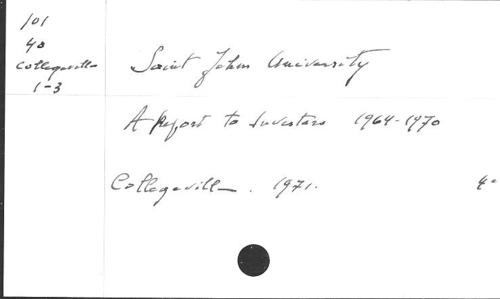 101
40
Collegeville
1-3
Saint John University
A Report to Investors 1964-1970
Collegeville. 1971. 4°